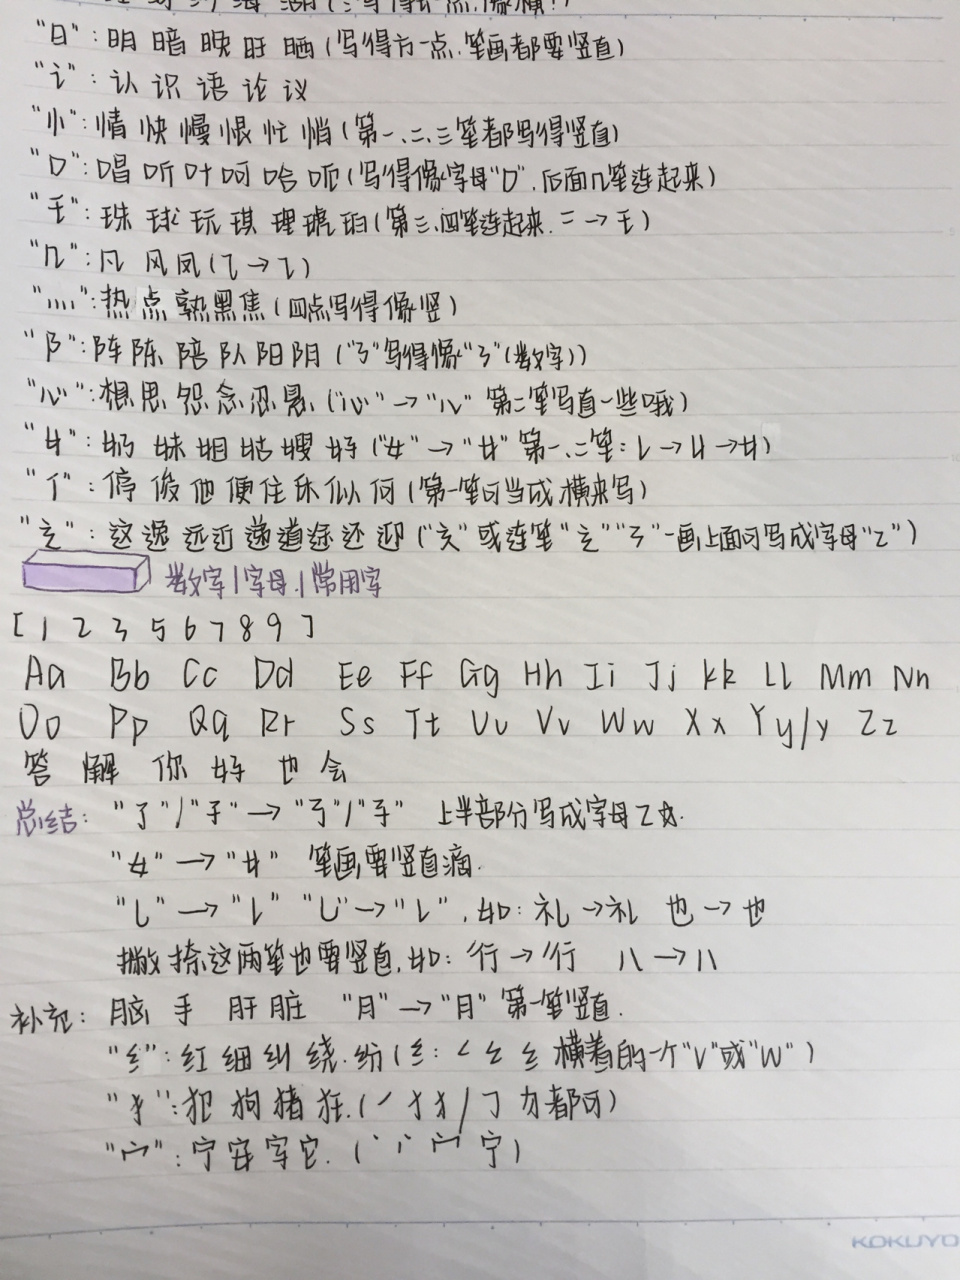 "日": 明 暗 晚 旺 晒 (写得方一点.笔画都要竖直)
"讠": 认 识 语 论 议
"忄": 情 快 慢 恨 忙 悄 (第一、二、三笔都写得竖直)
"口": 唱 听 叶 呵 哈 呃 (写得像字母"D".后面几笔连起来)
"王": 珠 球 玩 琪 理 琥 珀 (第三、四笔连起来. 二 → 王)
"几": 凡 风 凤 (⺄ → ⺄)
"灬": 热 点 熟 黑 焦 (四点写得像竖)
"阝": 阵 陈 陪 队 阳 阴 ("㇌"写得像"3"(数字))
"心": 想 思 怨 念 忍 悬 ("心" → "心" 第二笔写直一些哦)
"女": 奶 妹 姐 姑 嫂 好 ("女" → "女" 第一、二笔: 𠄌 → 女 → 女)
"亻": 停 俊 他 便 住 休 似 何 (第一笔可当成横来写)
"辶": 这 逸 远 近 递 道 途 还 迎 ("辶"或连笔"辶""㇋"一画上面可写成字母"Z")
数字 | 字母. | 常用字
[ 1 2 3 5 6 7 8 9 ]
Aa Bb Cc Dd Ee Ff Gg Hh Ii Jj Kk Ll Mm Nn
Oo Pp Qq Rr Ss Tt Uu Vv Ww Xx Yy/y Zz
答 懈 你 好 也 会
总结: "了"/"子" → "了"/"子" 上半部分写成字母Z 如.
"女" → "女" 笔画要竖直滴.
"乚" → "乚" "乚" → "乚". 如: 礼 → 礼 也 → 也
撇 捺这两笔也要竖直. 如: 行 → 行 八 → 八
补充: 脑 手 肝 脏 "月" → "月" 第一笔竖直.
"纟": 红 细 纠 绕. 纷 (纟: ㄥ 纟 纟 横着的一个"V"或"W")
"犭": 犯 狗 猪 狂. (㇒ 犭 犭 / 𠃌 力 都可)
"宀": 宁 安 字 它. (丶 丷 宀 宁)
KOKUYO